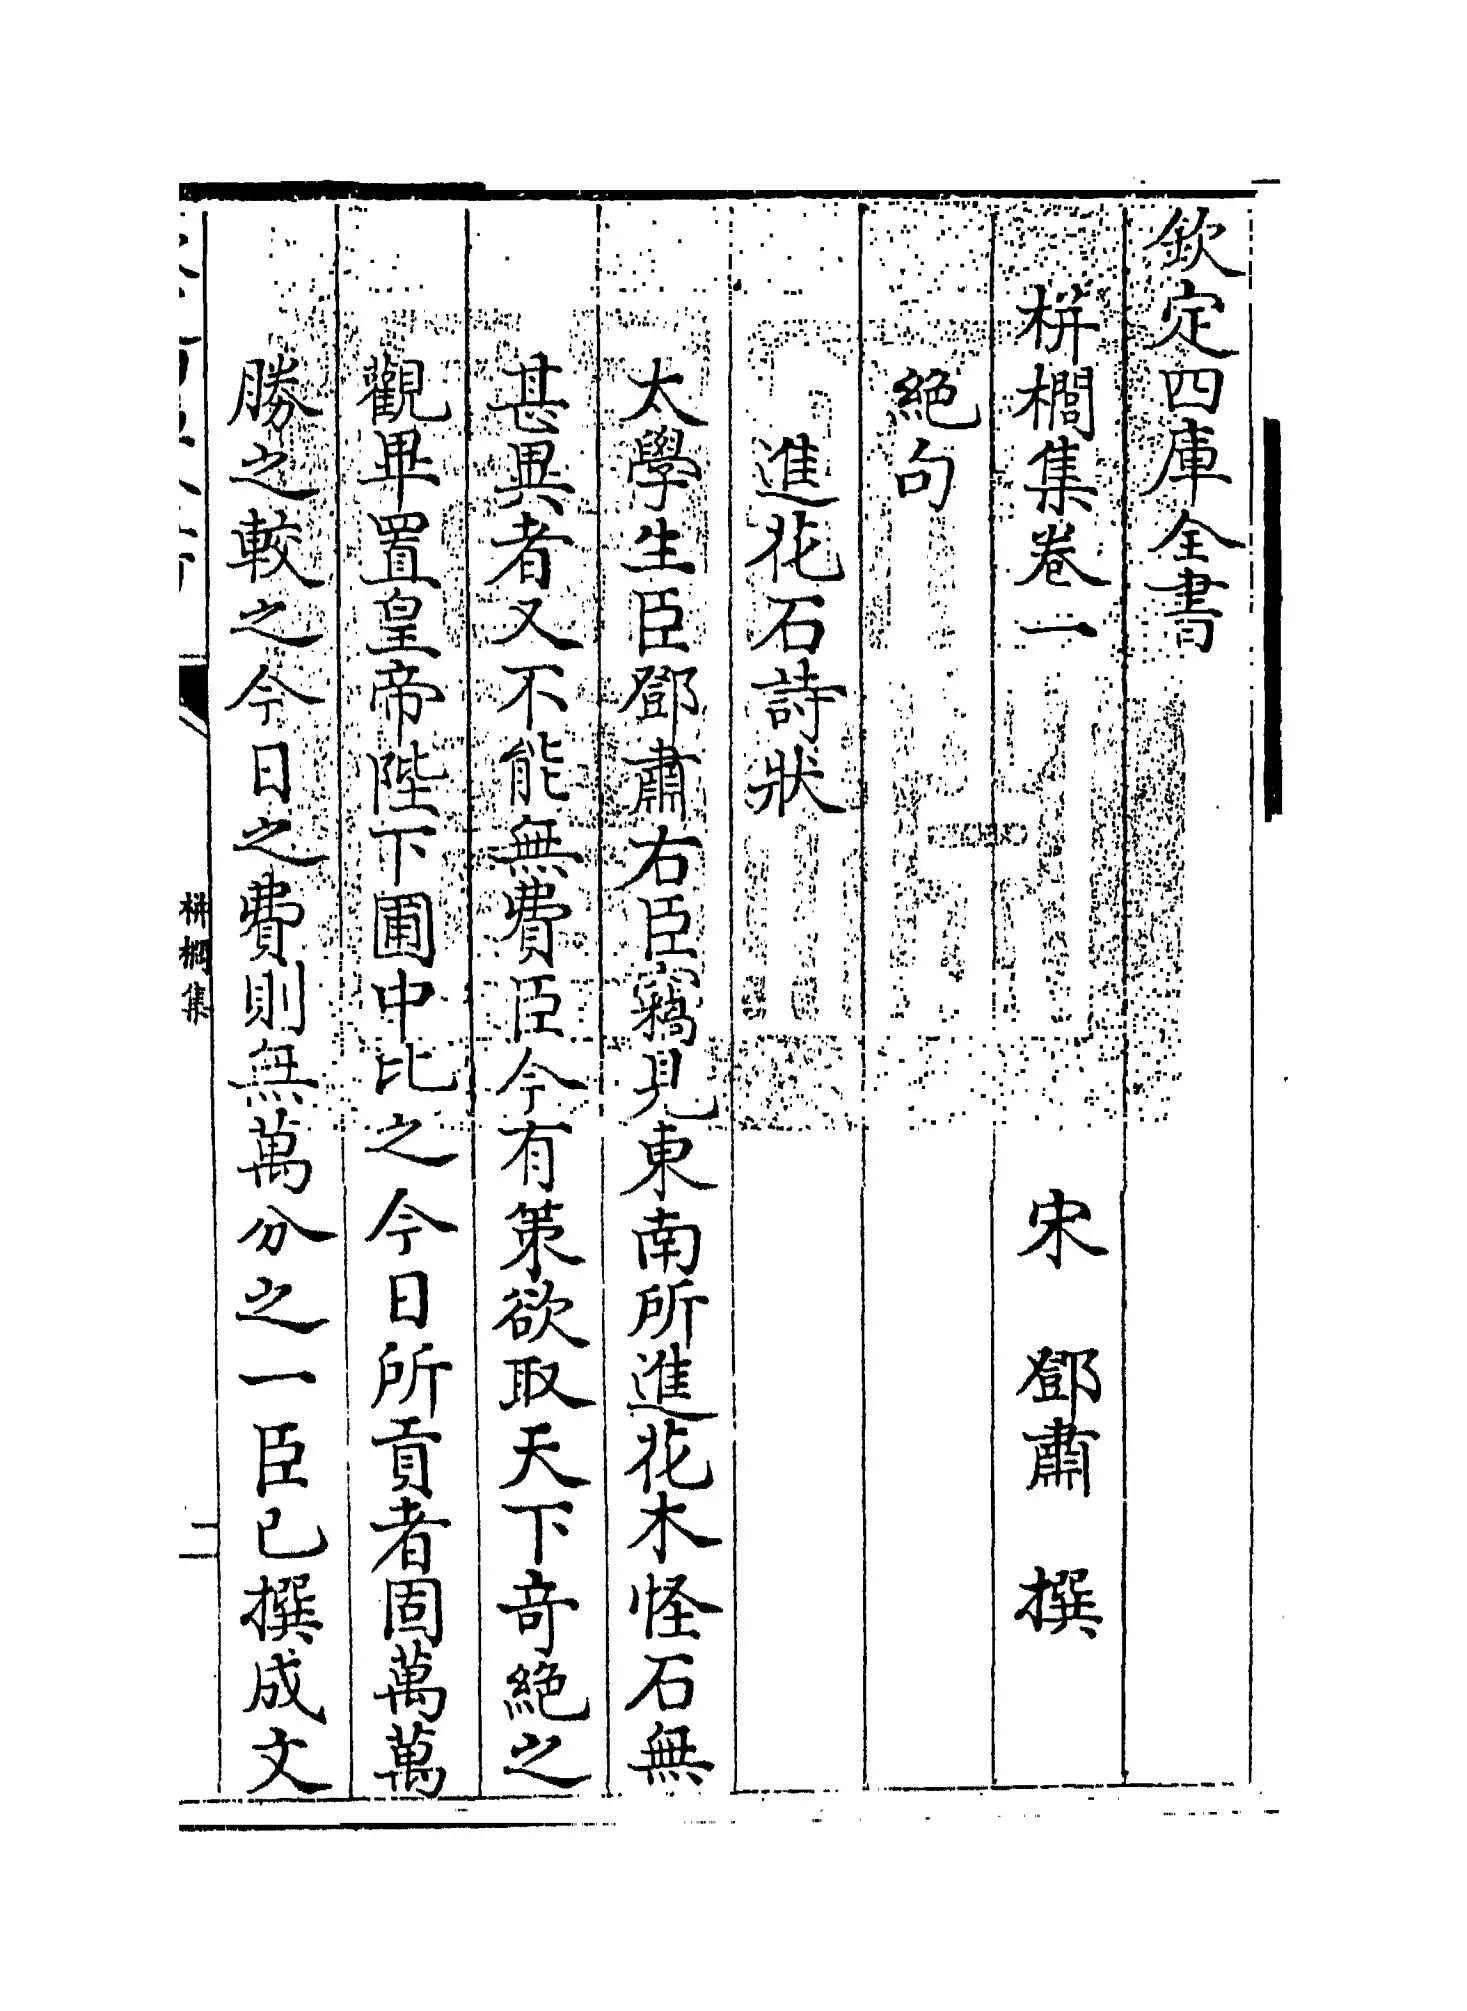 欽定四庫全書
栟櫚集卷一 宋 鄧肅 撰
絕句
進花石詩狀
太學生臣鄧肅右臣竊見東南所進花木怪石無
甚異者又不能無費臣今有策欲取天下奇絕之
觀畢置皇帝陛下圃中比之今日所貢者固萬萬
勝之較之今日之費則無萬分之一臣已撰成文
栟櫚集